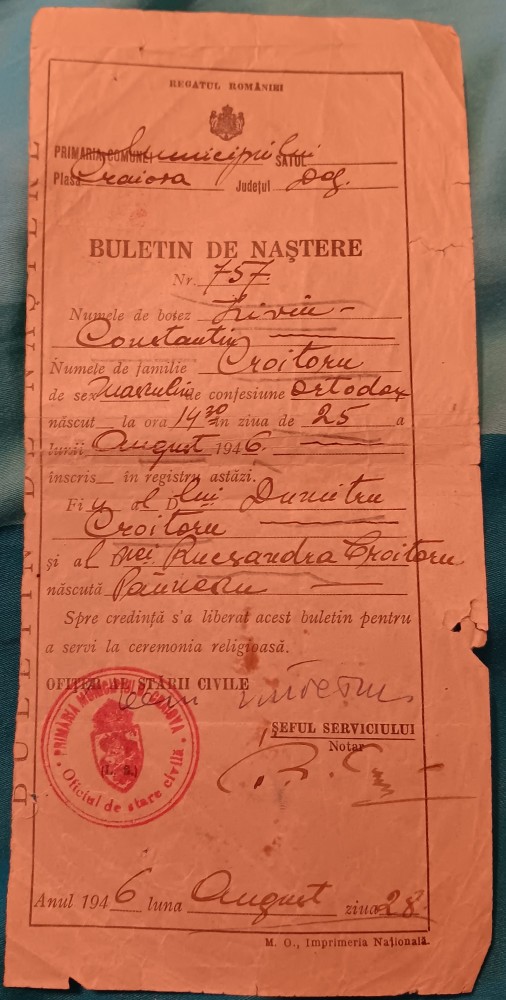 REGATUL ROMÂNIEI
PRIMARIA COMUNEI Municipiului SATUL
Plasa Craiova Județul Dolj.
BULETIN DE NAȘTERE
Nr. 757.
Numele de botez Liviu –
Constantin
Numele de familie Croitoru
de sex Masculin de confesiune Ortodox
născut la ora 14 30 în ziua de 25 a
lunii August 1946.
înscris în registru astăzi.
Fiu al D lui Dumitru
Croitoru
și al D nei Rucsandra Croitoru
născută
Spre credință s'a liberat acest buletin pentru
a servi la ceremonia religioasă.
OFIȚER AL STĂRII CIVILE
ȘEFUL SERVICIULUI
Notar
PRIMĂRIA MUNICIPIULUI CRAIOVA
Oficiul de stare civilă
(L. S.)
Anul 1946 luna August ziua 28.
M. O., Imprimeria Națională.
BULETIN DE NAȘTERE